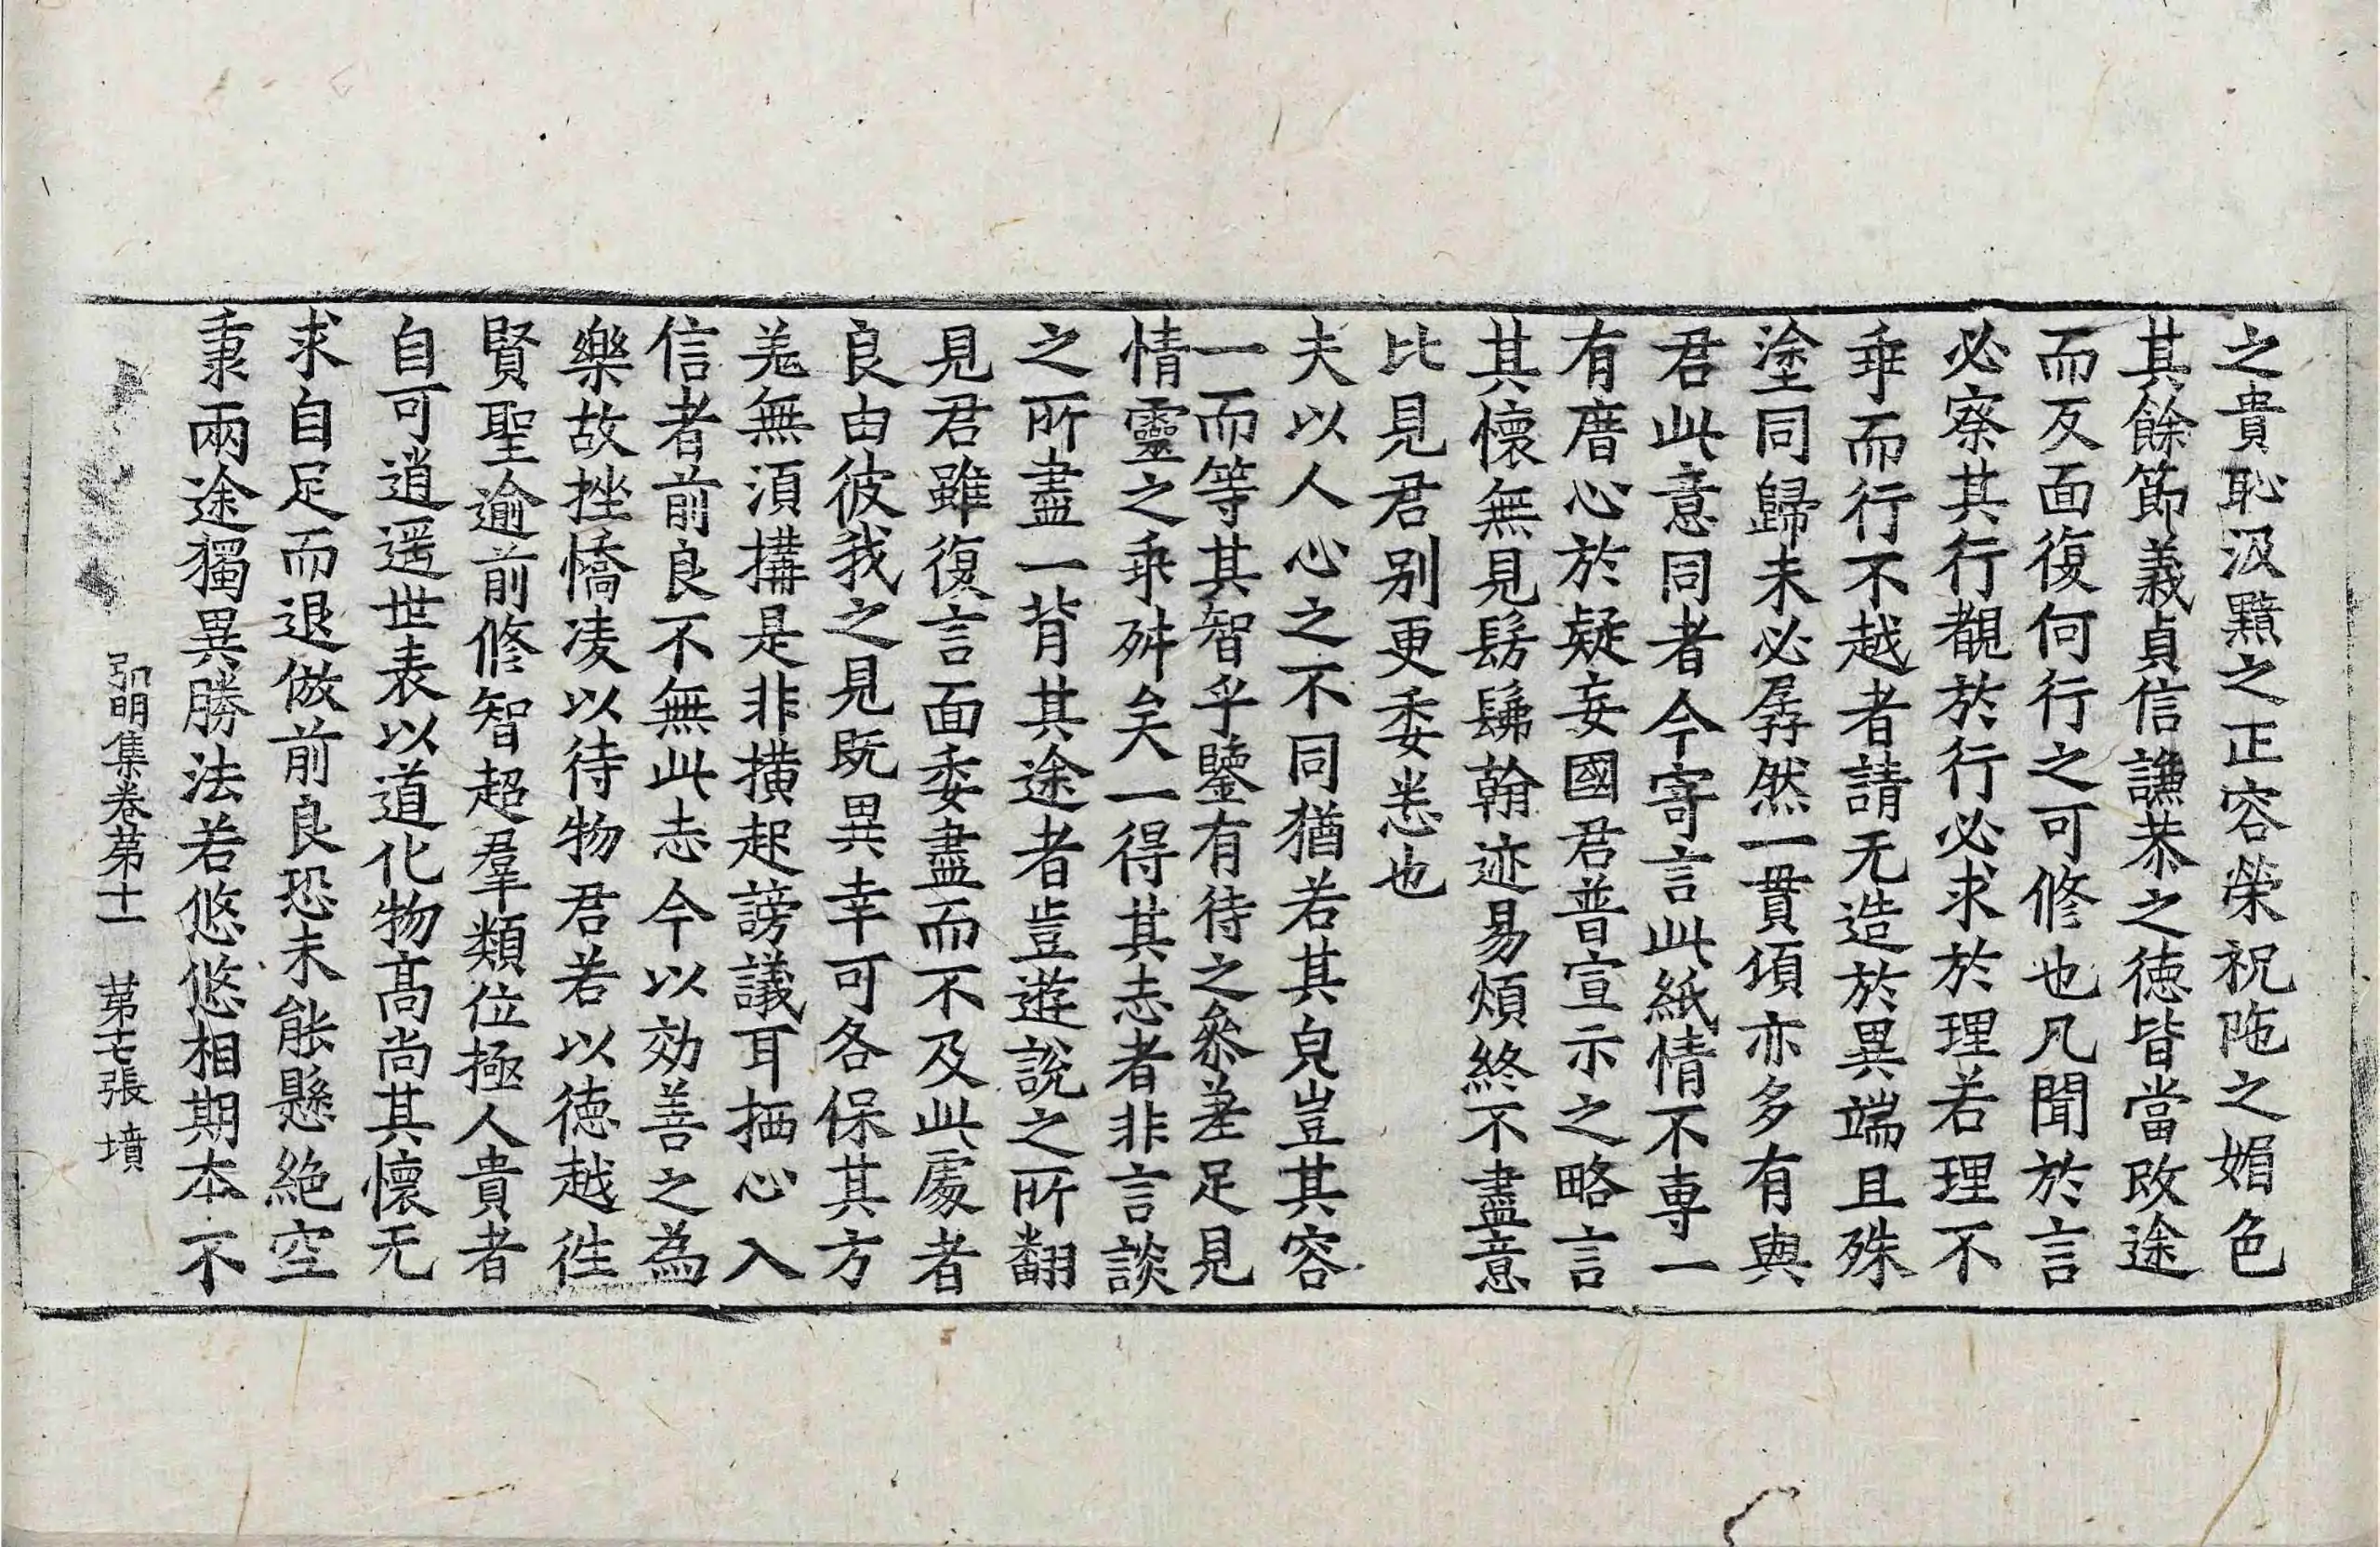 之貴恥汲黯之正容榮祝陁之媚色
其餘節義貞信謙恭之德皆當改途
而反面復何行之可修也凡聞於言
必察其行覩於行必求於理若理不
乖而行不越者請无造於異端且殊
塗同歸未必孱然一貫頃亦多有與
君此意同者今寄言此紙情不專一
有厝心於疑妄國君普宣示之略言
其懷無見髣髴翰迹易煩終不盡意
比見君別更委悉也
夫以人心之不同猶若其皃豈其容
一而等其智乎鑒有待之叅差足見
情靈之乖舛矣一得其志者非言談
之所盡一背其途者豈遊說之所翻
見君雖復言面委盡而不及此處者
良由彼我之見既異幸可各保其方
差無湏搆是非撗起謗議耳栖心入
信者前良不無此志今以効善之為
樂故挫憍凌以待物君若以德越徃
賢聖逾前修智超羣類位極人貴者
自可逍遥世表以道化物髙尚其懷无
求自足而退倣前良恐未能懸絶空
秉兩途獨異勝法若悠悠相期本不
弘明集卷第十一　第七張　墳